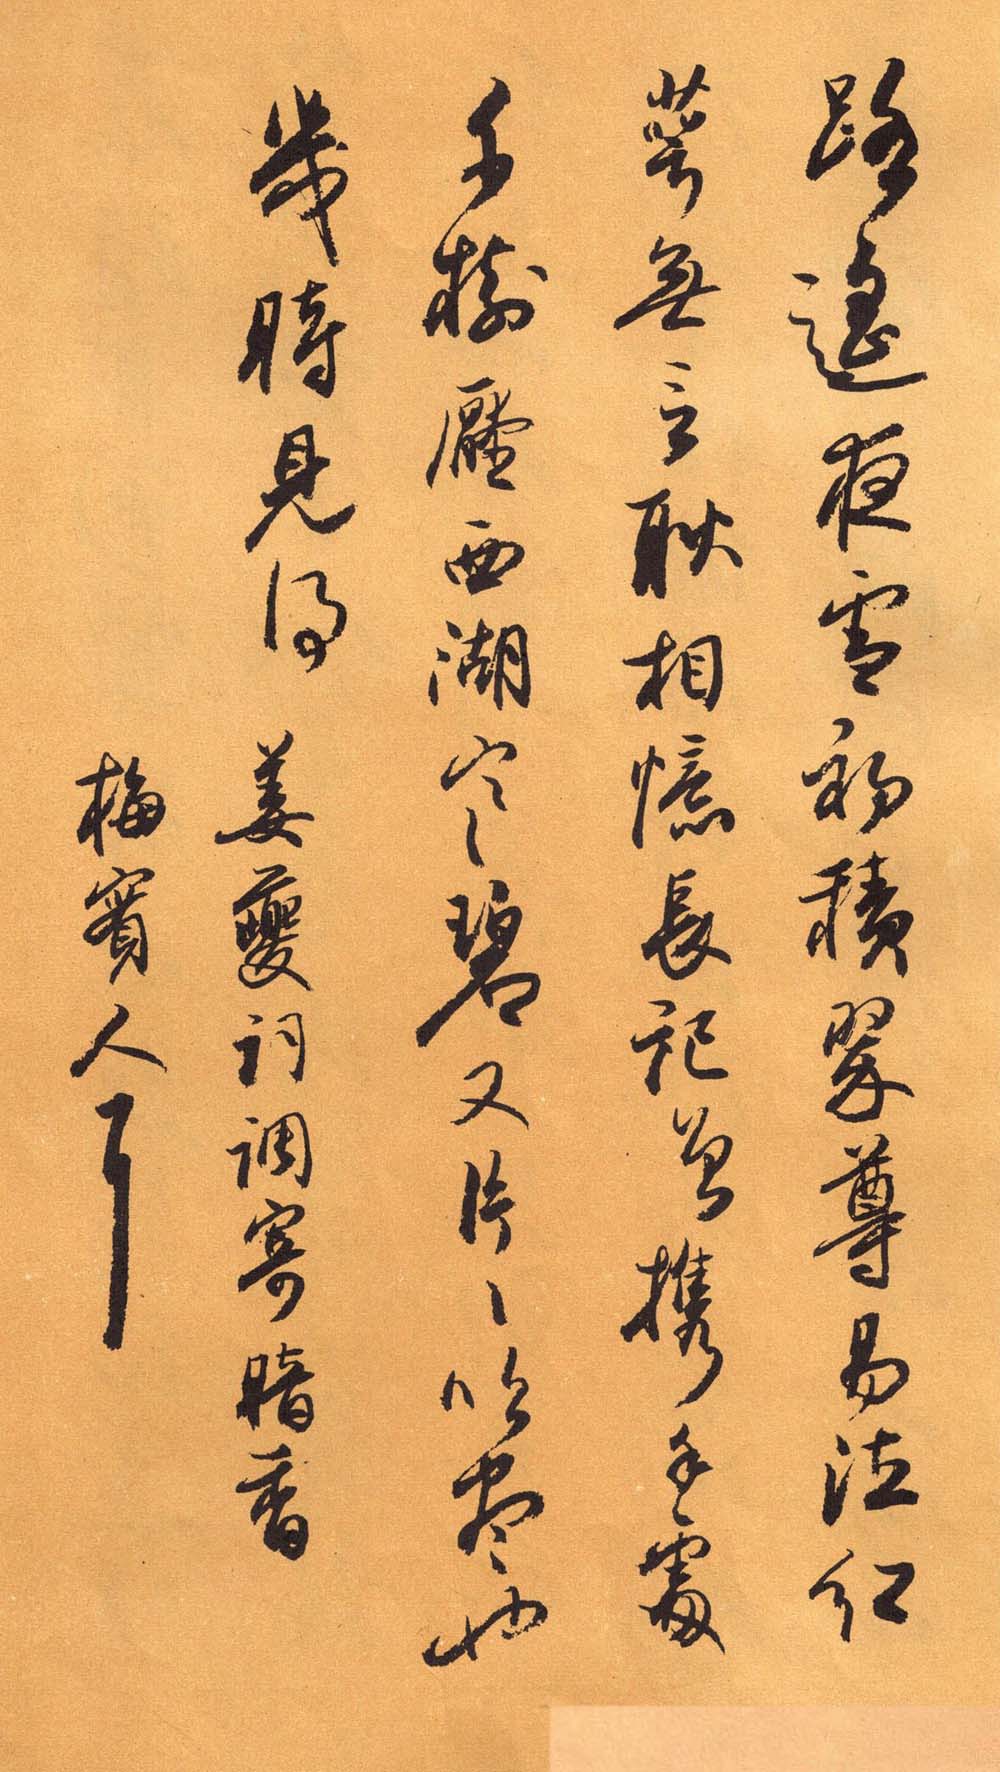 路遙夜雪初積翠尊易泣紅
萼無言耿相憶長記曾携手處
千樹壓西湖寒碧又片〻吹盡也
幾時見得 姜夔詞調寄暗香
梅賓人